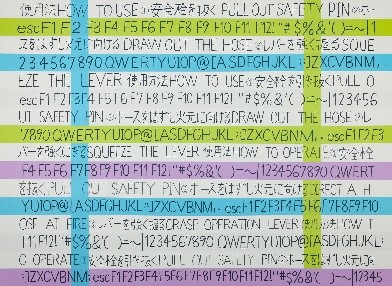 使用方法HOW TO USE①安全栓を抜くPULL OUT SAFETY PIN②
escF1F2F3F4F5F6F7F8F9F10F11F12!"#$%&'()=~|1
スをはずし火元に向けるDRAW OUT THE HOSE③レバーを強くにぎるSQUE
234567890QWERTYUIOP@[ASDFGHJKL;:]ZXCVBNM,.
EZE THE LEVER 使用方法HOW TO USE①安全栓を引き抜くPULL O
escF1F2F3F4F5F6F7F8F9F10F11F12!"#$%&'()=~|123456
UT SAFETY PIN②ホースをはずし火元に向けるDRAW OUT THE HOSE③レ
7890QWERTYUIOP@[ASDFGHJKL;:]ZXCVBNM,.escF1F2F3
バーを強くにぎるSQUEEZE THE LEVER使用方法HOW TO OPERATE①安全栓
F4F5F6F7F8F9F10F11F12!"#$%&'()=~|1234567890QWERT
を抜くPULL OUT SAFETY PIN②ホースをはずし火元に向けるDIRECT A H
YUIOP@[ASDFGHJKL;:]ZXCVBNM,.escF1F2F3F4F5F6F7F8F9F10
OSE AT FIRE③レバーを強く握るGRASP OPERATION LEVER使用方法HOW T
F11F12!"#$%&'()=~|1234567890QWERTYUIOP@[ASDFGHJKL;:
O OPERATE①安全栓を引き抜くPULL OUT SAFETY PIN②ホースをはずし火元に
]ZXCVBNM,.escF1F2F3F4F5F6F7F8F9F10F11F12!"#$%&'()=~|12345